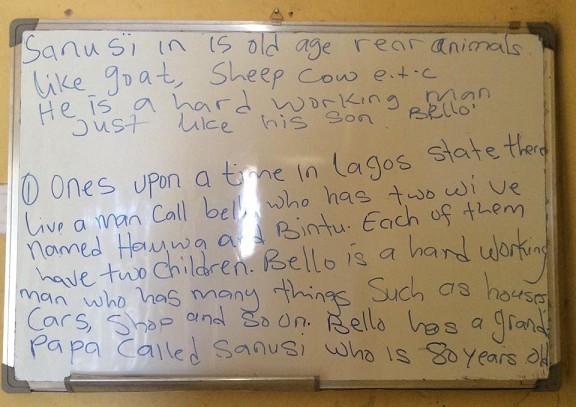 Sanusi in 15 old age rear animals.
like goat, Sheep Cow e.t.c
He is a hard working man
Just like his son Bello.
① Ones upon a time In lagos state there
live a man Call bello who has two wive
named Haywa and Bintu. Each of them
have two Children. Bello is a hard working
man who has many things Such as houses
Cars, Shop and So on. Bello has a grand
Papa Called Sanusi who is 80 years old